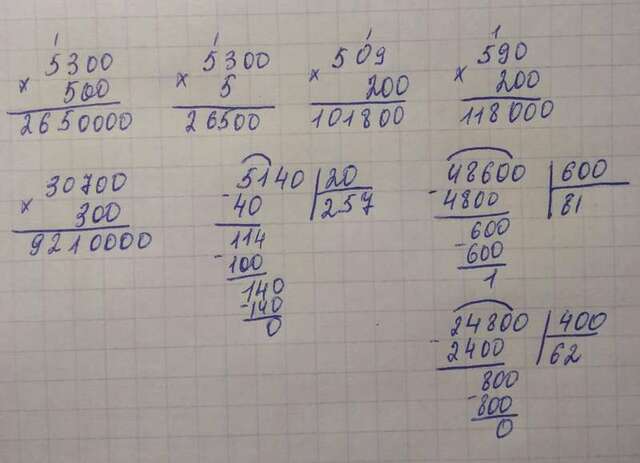 1
5300
× 500
2650000
1
5300
× 5
26500
1
509
× 200
101800
1
590
× 200
118000
30700
× 300
9210000
5140 | 20
- 40 | 257
114
- 100
140
- 140
0
48600 | 600
- 4800 | 81
600
- 600
1
24800 | 400
- 2400 | 62
800
- 800
0